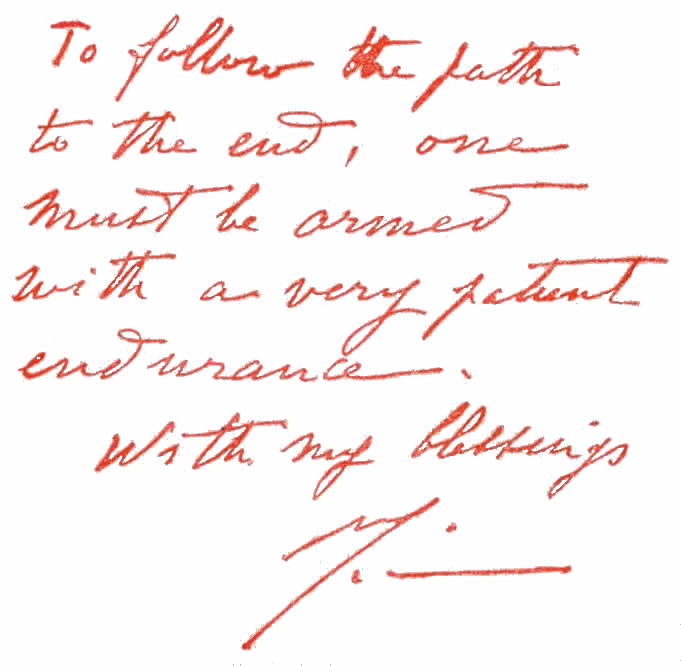 To follow the path
to the end, one
must be armed
with a very patient
endurance.
With my blessings